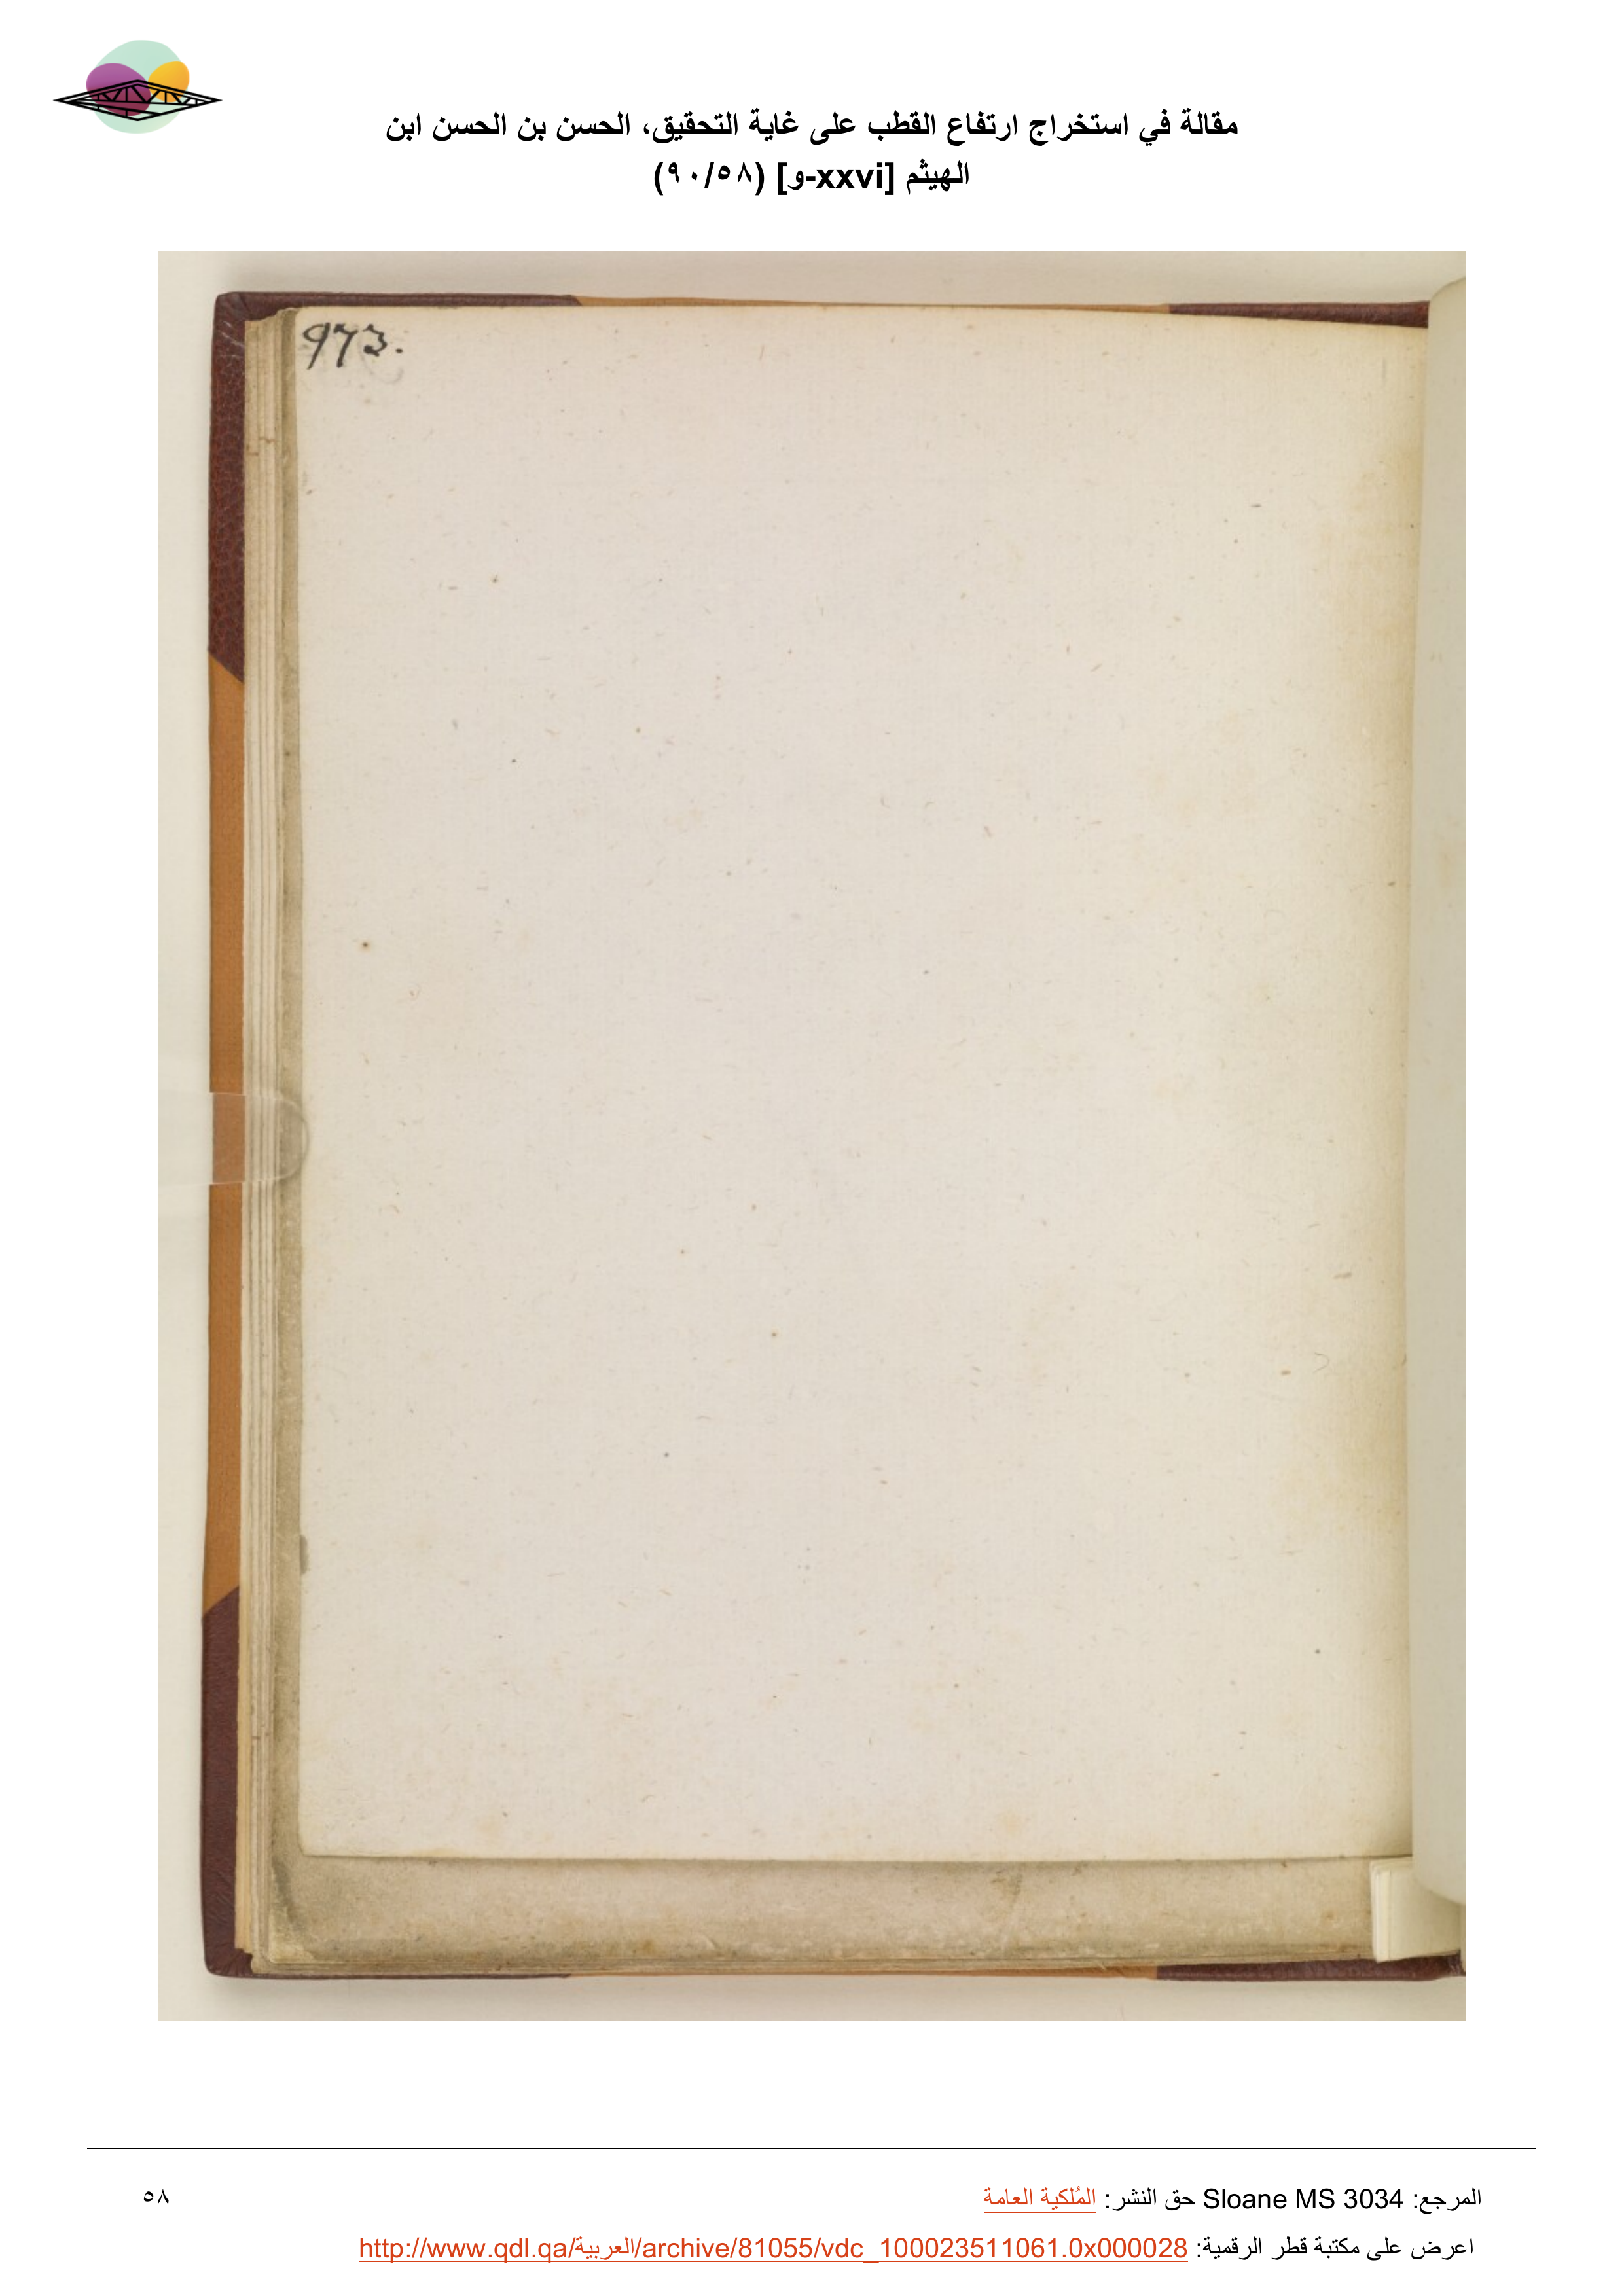 مقالة في استخراج ارتفاع القطب على غاية التحقيق، الحسن بن الحسن ابن
الهيثم [xxvi-و] (٩٠/٥٨)
973.
المرجع: Sloane MS 3034 حق النشر: المُلكية العامة
٥٨
اعرض على مكتبة قطر الرقمية: http://www.qdl.qa/العربية/archive/81055/vdc_100023511061.0x000028